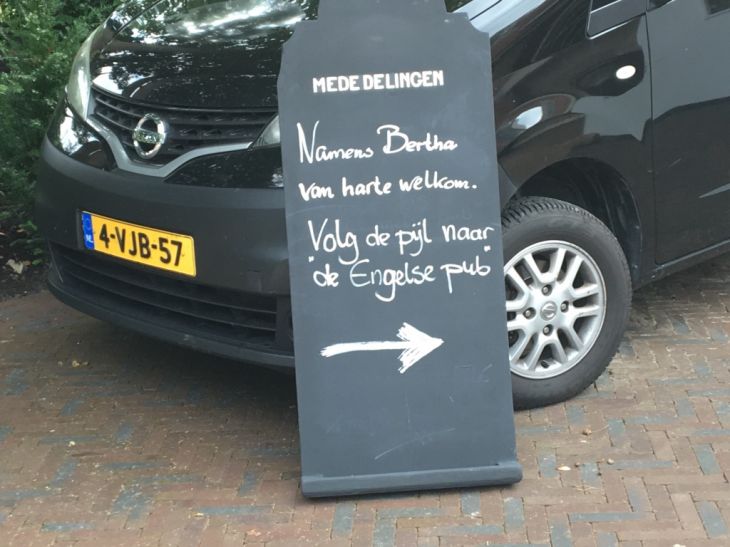 MEDEDELINGEN
Namens Bertha
van harte welkom.
Volg de pijl naar
"de Engelse pub"
NL
4-VJB-57